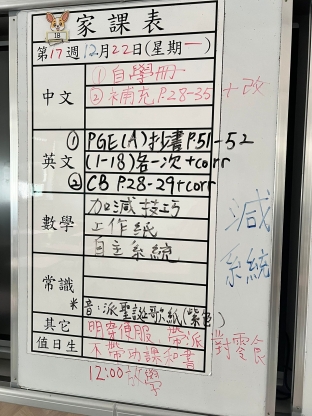 家課表
第17週12月22日(星期一)
中文
①自學冊
②補充P.28-35+改
英文
① PGE(A)抄書P.51-52
(1-18)各一次+corr
② CB P.28-29+corr
數學
加減技巧
工作紙
自主系統
減
系統
常識
*音:派聖誕歌紙(紫色)
其它
明穿便服、帶派對零食
值日生
不帶功課和書
12:00放學